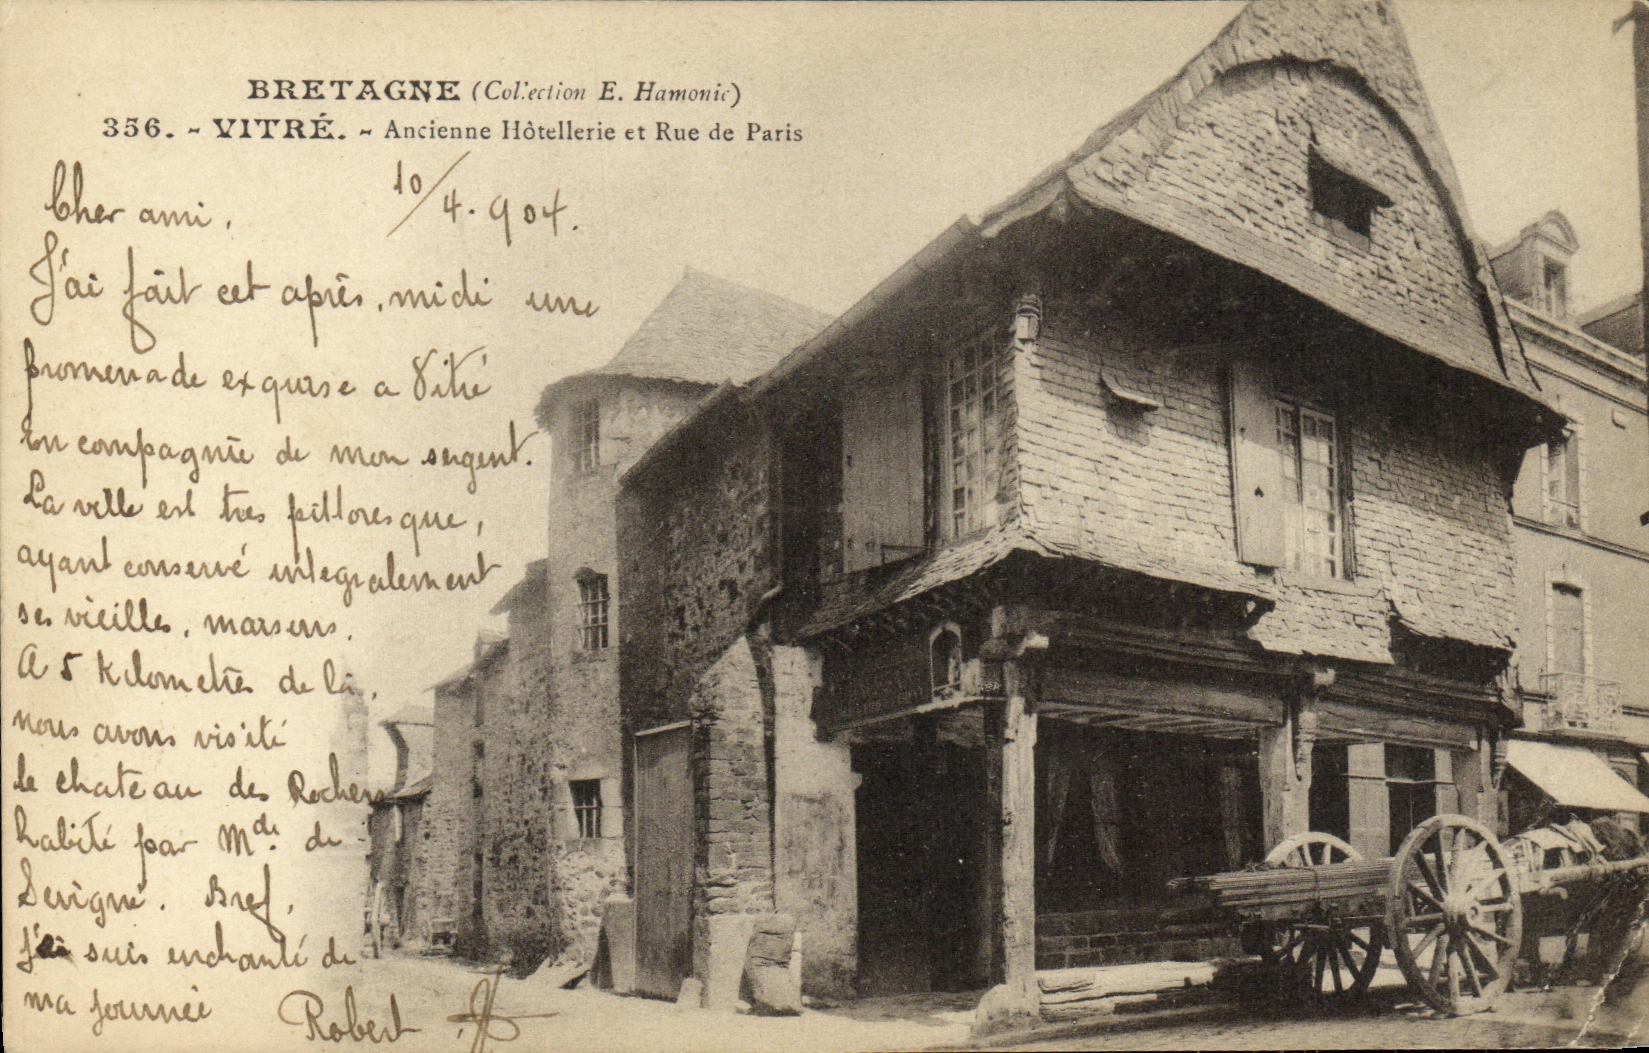 BRETAGNE (Collection E. Hamonic)
356. - VITRÉ. - Ancienne Hôtellerie et Rue de Paris
10/4.904.
Cher ami,
J'ai fait cet après, midi une
promenade exquise a Vitré
en compagnie de mon sergent.
La ville est tres pittoresque,
ayant conservé integralement
ses vieilles, maisons.
A 5 Kilometres de là,
nous avons visité
le chateau des Rochers
habité par Mde. de
Sevigné. Bref,
je suis enchanté de
ma journée
Robert